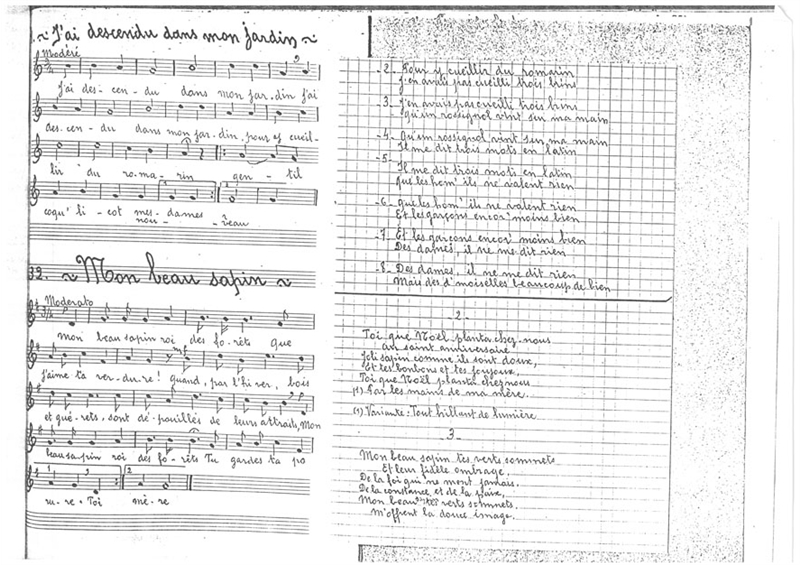 J'ai descendu dans mon jardin
Modéré
J'ai des-cen-du dans mon jar-din j'ai
des-cen-du dans mon jar-din pour y cueil-
lir du ro-ma-rin gen-til
coqu'li-cot mes-dames
nou-veau
32. Mon beau sapin
Moderato
Mon beau sapin roi des fo-rêts que
j'aime ta ver-du-re! quand, par l'hiver, bois
et guérets, sont dé-pouillés de leurs attraits, Mon
beau sapin roi des fo-rêts Tu gardes ta pa
ru-re. Toi mè-re
-2- Pour y cueillir du romarin
J'en avais pas cueilli trois brins
-3- J'en avais pas cueilli trois brins
Qu'un rossignol vint sur ma main
-4- Qu'un rossignol vint sur ma main
Il me dit trois mots en latin
-5-
Il me dit trois mots en latin
Que les hom' ils ne valent rien
-6- Que les hom' il ne valent rien
Et les garçons encor' moins bien
-7- Et les garçons encor' moins bien
Des dames, il ne me dit rien
-8- Des dames, il ne me dit rien
Mais des d'moiselles beaucoup de bien
-2-
Toi que Noël planta chez-nous
au saint anniversaire
Joli sapin comme ils sont doux,
Et tes bonbons et tes joujoux,
Toi que Noël planta chez nous
(1) Par les mains de ma mère.
(1) Variante: Tout brillant de lumière
-3-
Mon beau sapin tes verts sommets
Et leur fidèle ombrage
De la foi qui ne ment jamais,
De la constance et de la paix,
Mon beau tes verts sommets,
M'offrent la douce image.